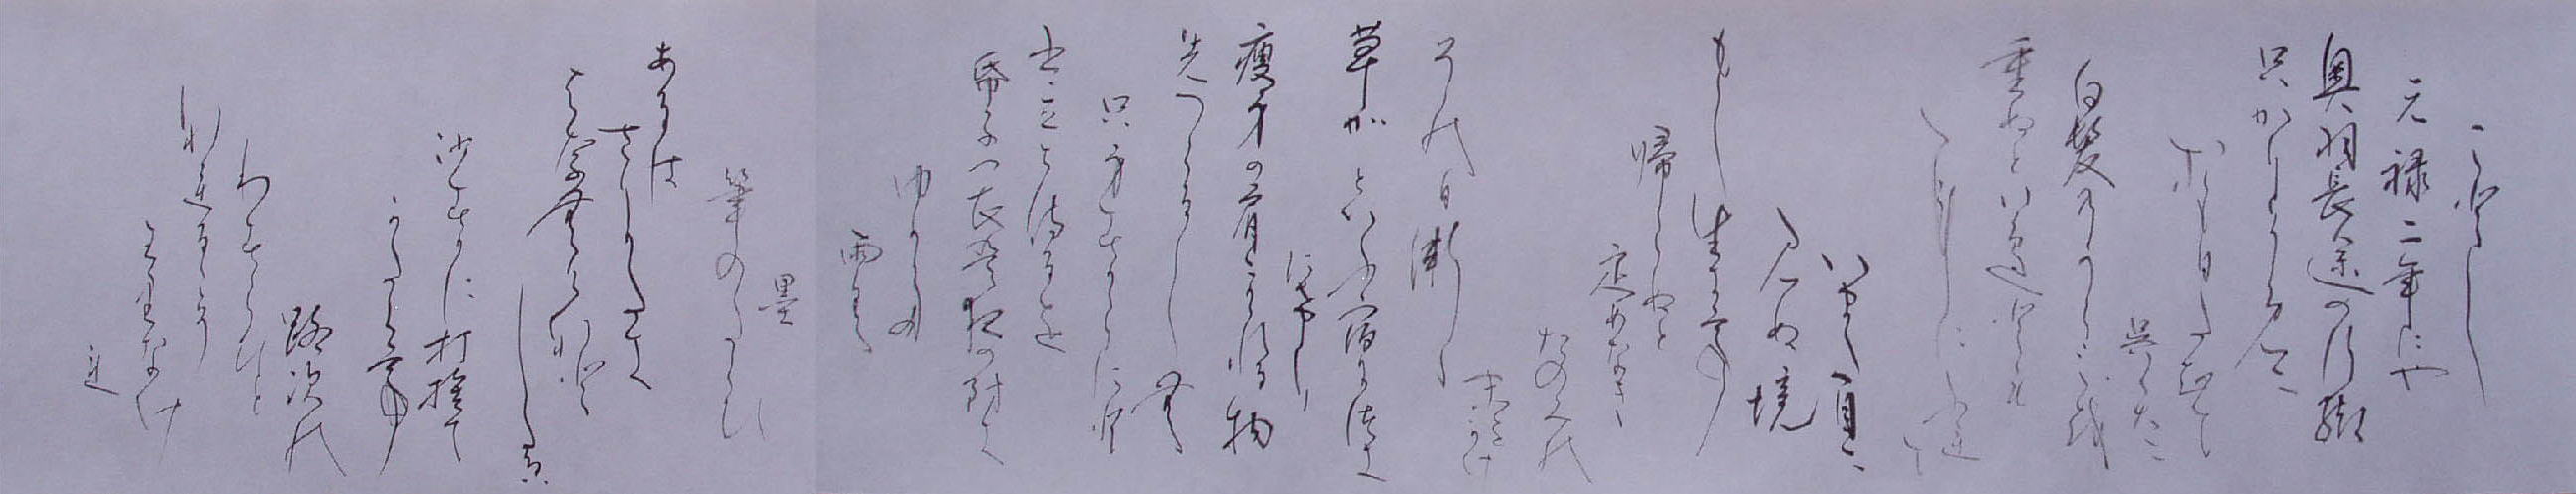 ことし
元禄二年にや
奥羽長途の行脚
只かりそめに
おもひたちて
呉天に
白髪のうらみを
重ぬといへ共
いまだ目に
見ぬ境
もし生て
帰らばと
定めなき
たのみの
末をかけ
その日漸
草加といふ宿に
にけり
痩骨の肩にかゝれる物
先くるしむ
只身すがらにと
出立侍るを
夜の防ぎ
ゆかた
雨具
墨
筆のたぐひ
あるは
さりがたき
さすがに打捨て
がたくて
路次の
わづらひと
なれるこそ
わりなけ
れ